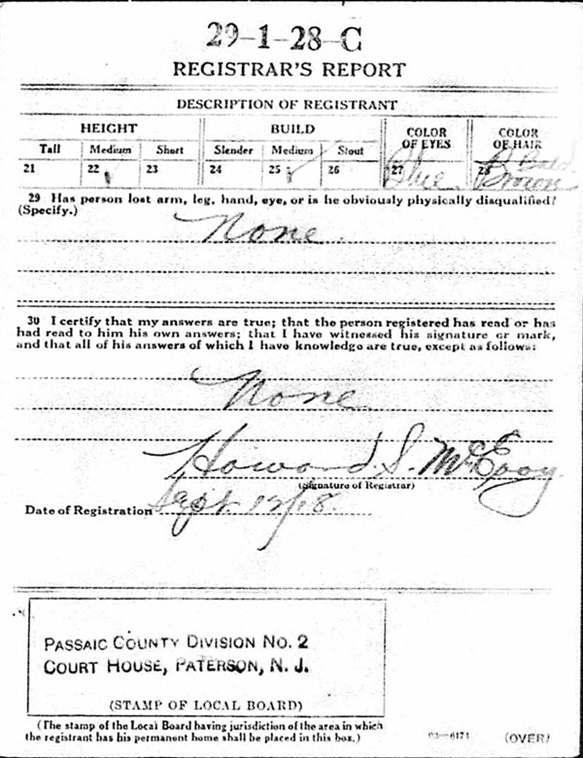 29-1-28-C
REGISTRAR'S REPORT
DESCRIPTION OF REGISTRANT
HEIGHT BUILD COLOR OF EYES COLOR OF HAIR
Tall Medium Short Slender Medium Stout
21 22 23 24 25 26 27 28
Blue Bald
Brown
29 Has person lost arm, leg, hand, eye, or is he obviously physically disqualified?
(Specify.)
None.
30 I certify that my answers are true; that the person registered has read or has
had read to him his own answers; that I have witnessed his signature or mark,
and that all of his answers of which I have knowledge are true, except as follows:
None
Howard S. McEvoy
(Signature of Registrar)
Date of Registration Sept. 12/18.
PASSAIC COUNTY DIVISION No. 2
COURT HOUSE, PATERSON, N. J.
(STAMP OF LOCAL BOARD)
(The stamp of the Local Board having jurisdiction of the area in which
the registrant has his permanent home shall be placed in this box.)
03-6171 (OVER)